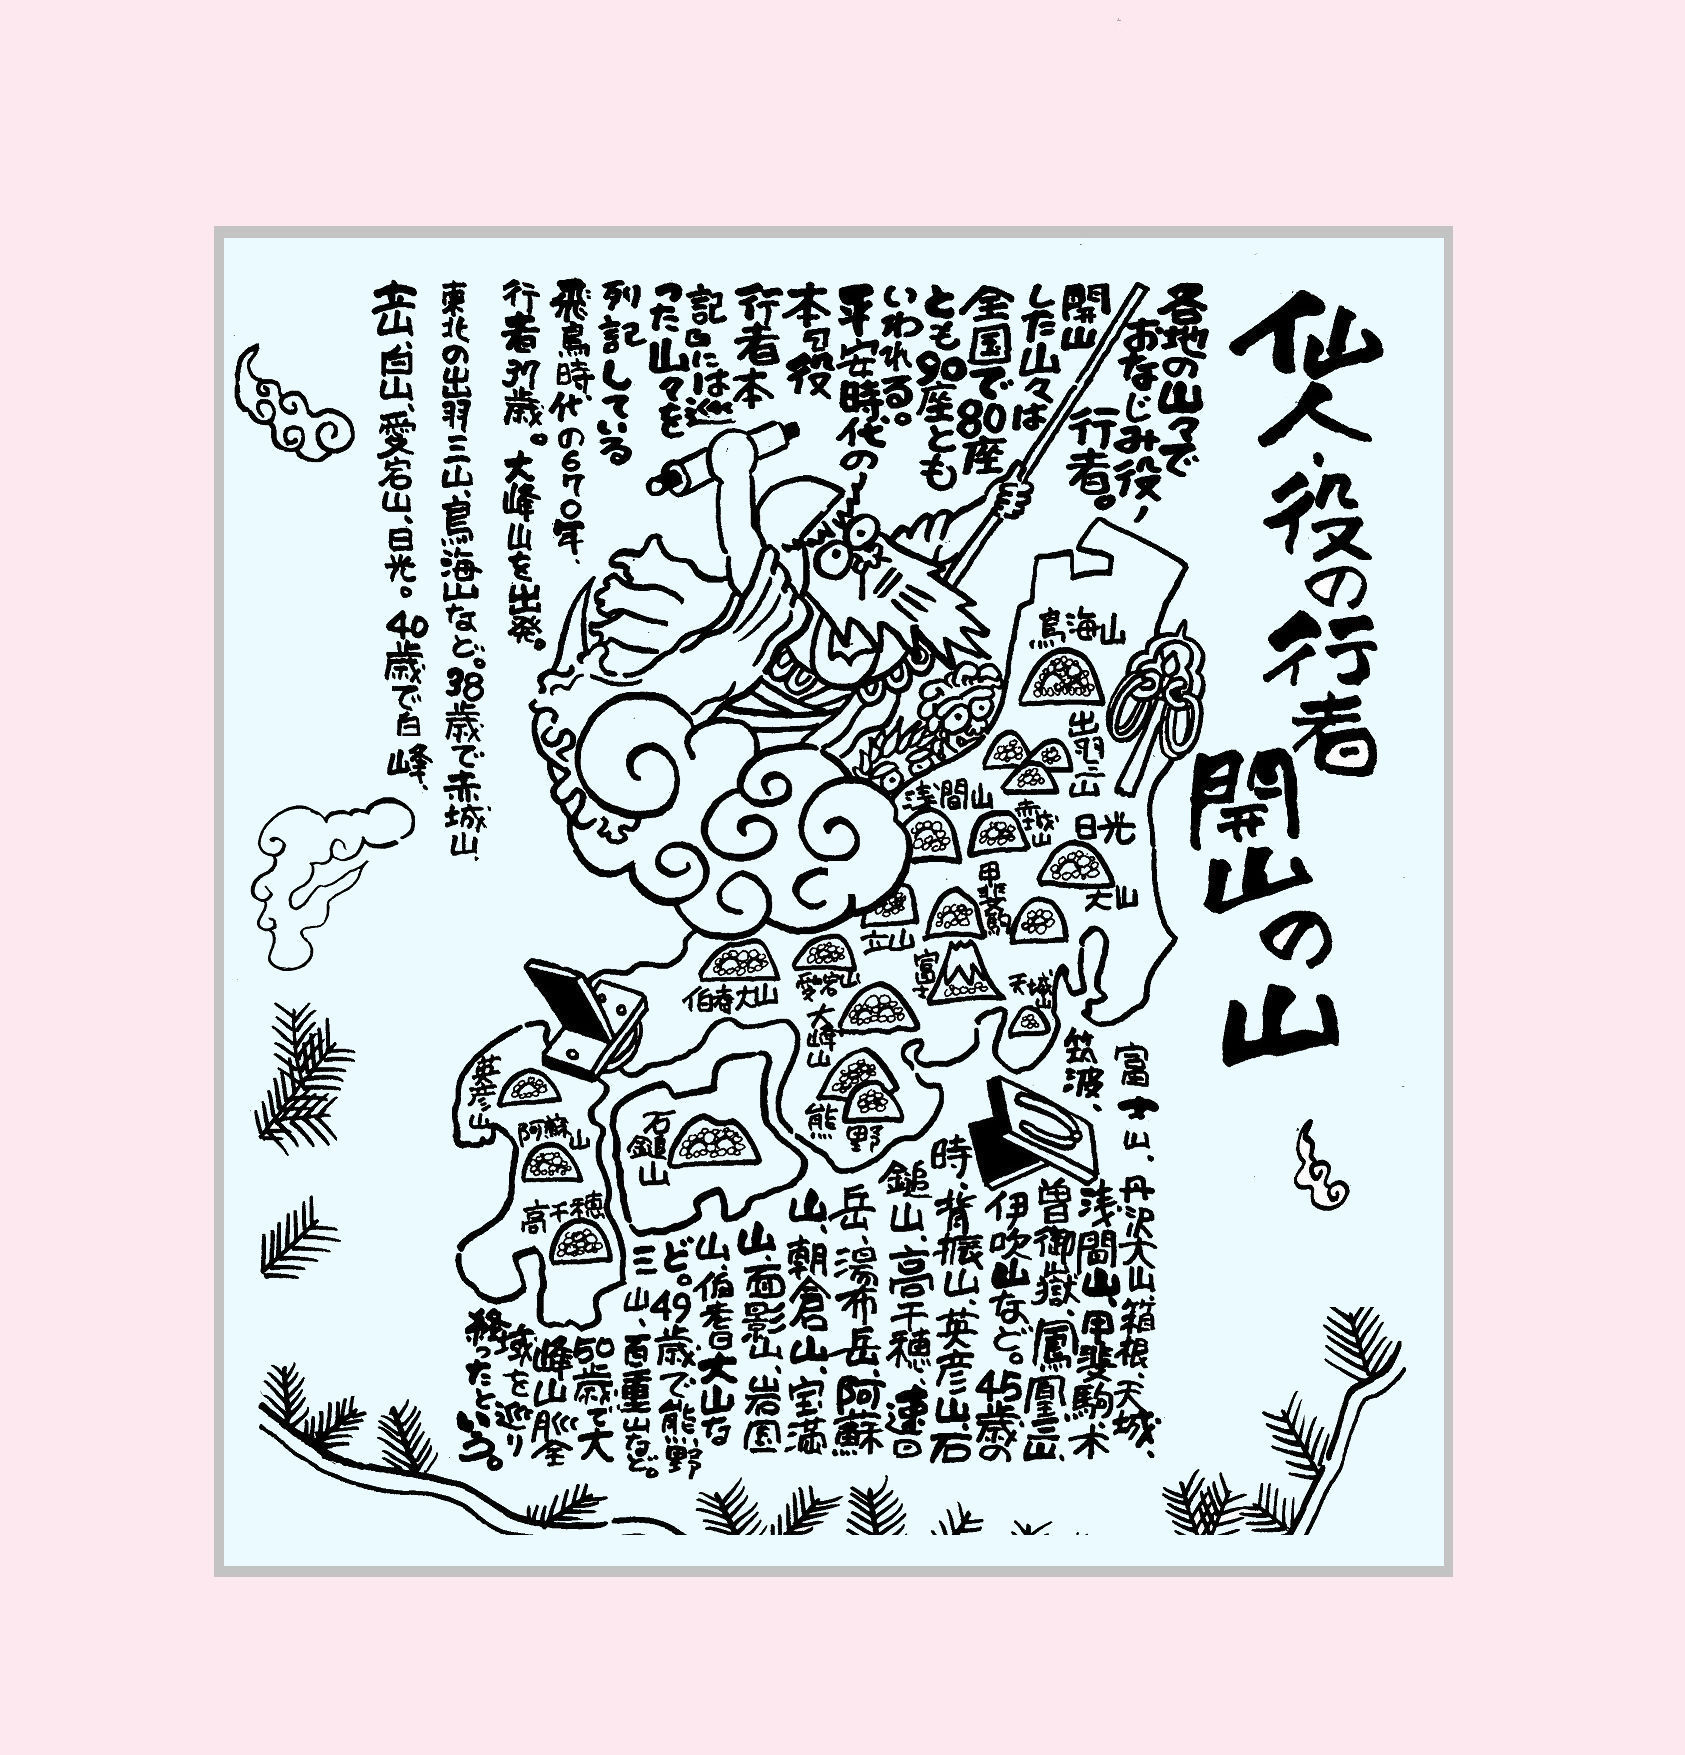 仙人・役の行者
開山の山
各地の山々で
おなじみ役ノ
行者。
開山
した山々は
全国で80座
とも90座とも
いわれる。
平安時代の
本『役
行者本
記』には巡
った山々を
列記している
飛鳥時代の670年、
行者37歳。大峰山を出発。
東北の出羽三山、鳥海山など。38歳で赤城山、
立山、白山、愛宕山、日光。40歳で白峰、
富士山、丹沢大山、箱根、天城、
筑波、
浅間山、甲斐駒、木
曽御嶽、鳳凰三山、
伊吹山など。45歳の
時、背振山、英彦山、石
鎚山、高千穂、速日
岳、湯布岳、阿蘇
山、朝倉山、宝満
山、面影山、岩国
山、伯耆大山な
ど。49歳で熊野
三山、百重山など。
50歳で大
峰山脈全
域を巡り
終ったという。
鳥海山
出羽三山
浅間山
赤城山
日光
甲斐駒
大山
立山
富士
天城山
愛宕山
伯耆大山
大峰山
熊野
石鎚山
英彦山
阿蘇山
高千穂